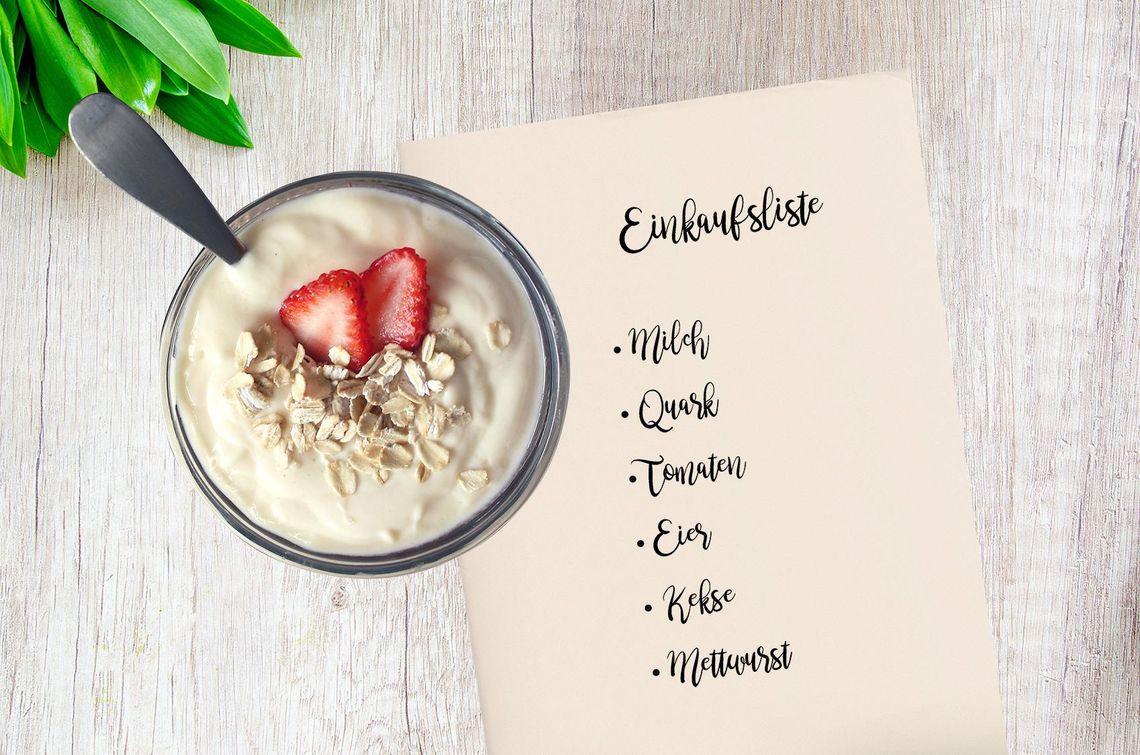 Einkaufsliste
• Milch
• Quark
• Tomaten
• Eier
• Kekse
• Mettwurst